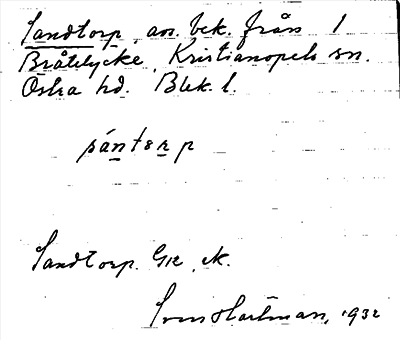 Sandtorp, an. bek. från 1
Bråtelycke, Kristianopels sn.
Östra hd. Blek. l.
sántorp
Sandtorp. Gk. eK.
Sven Hartman, 1932